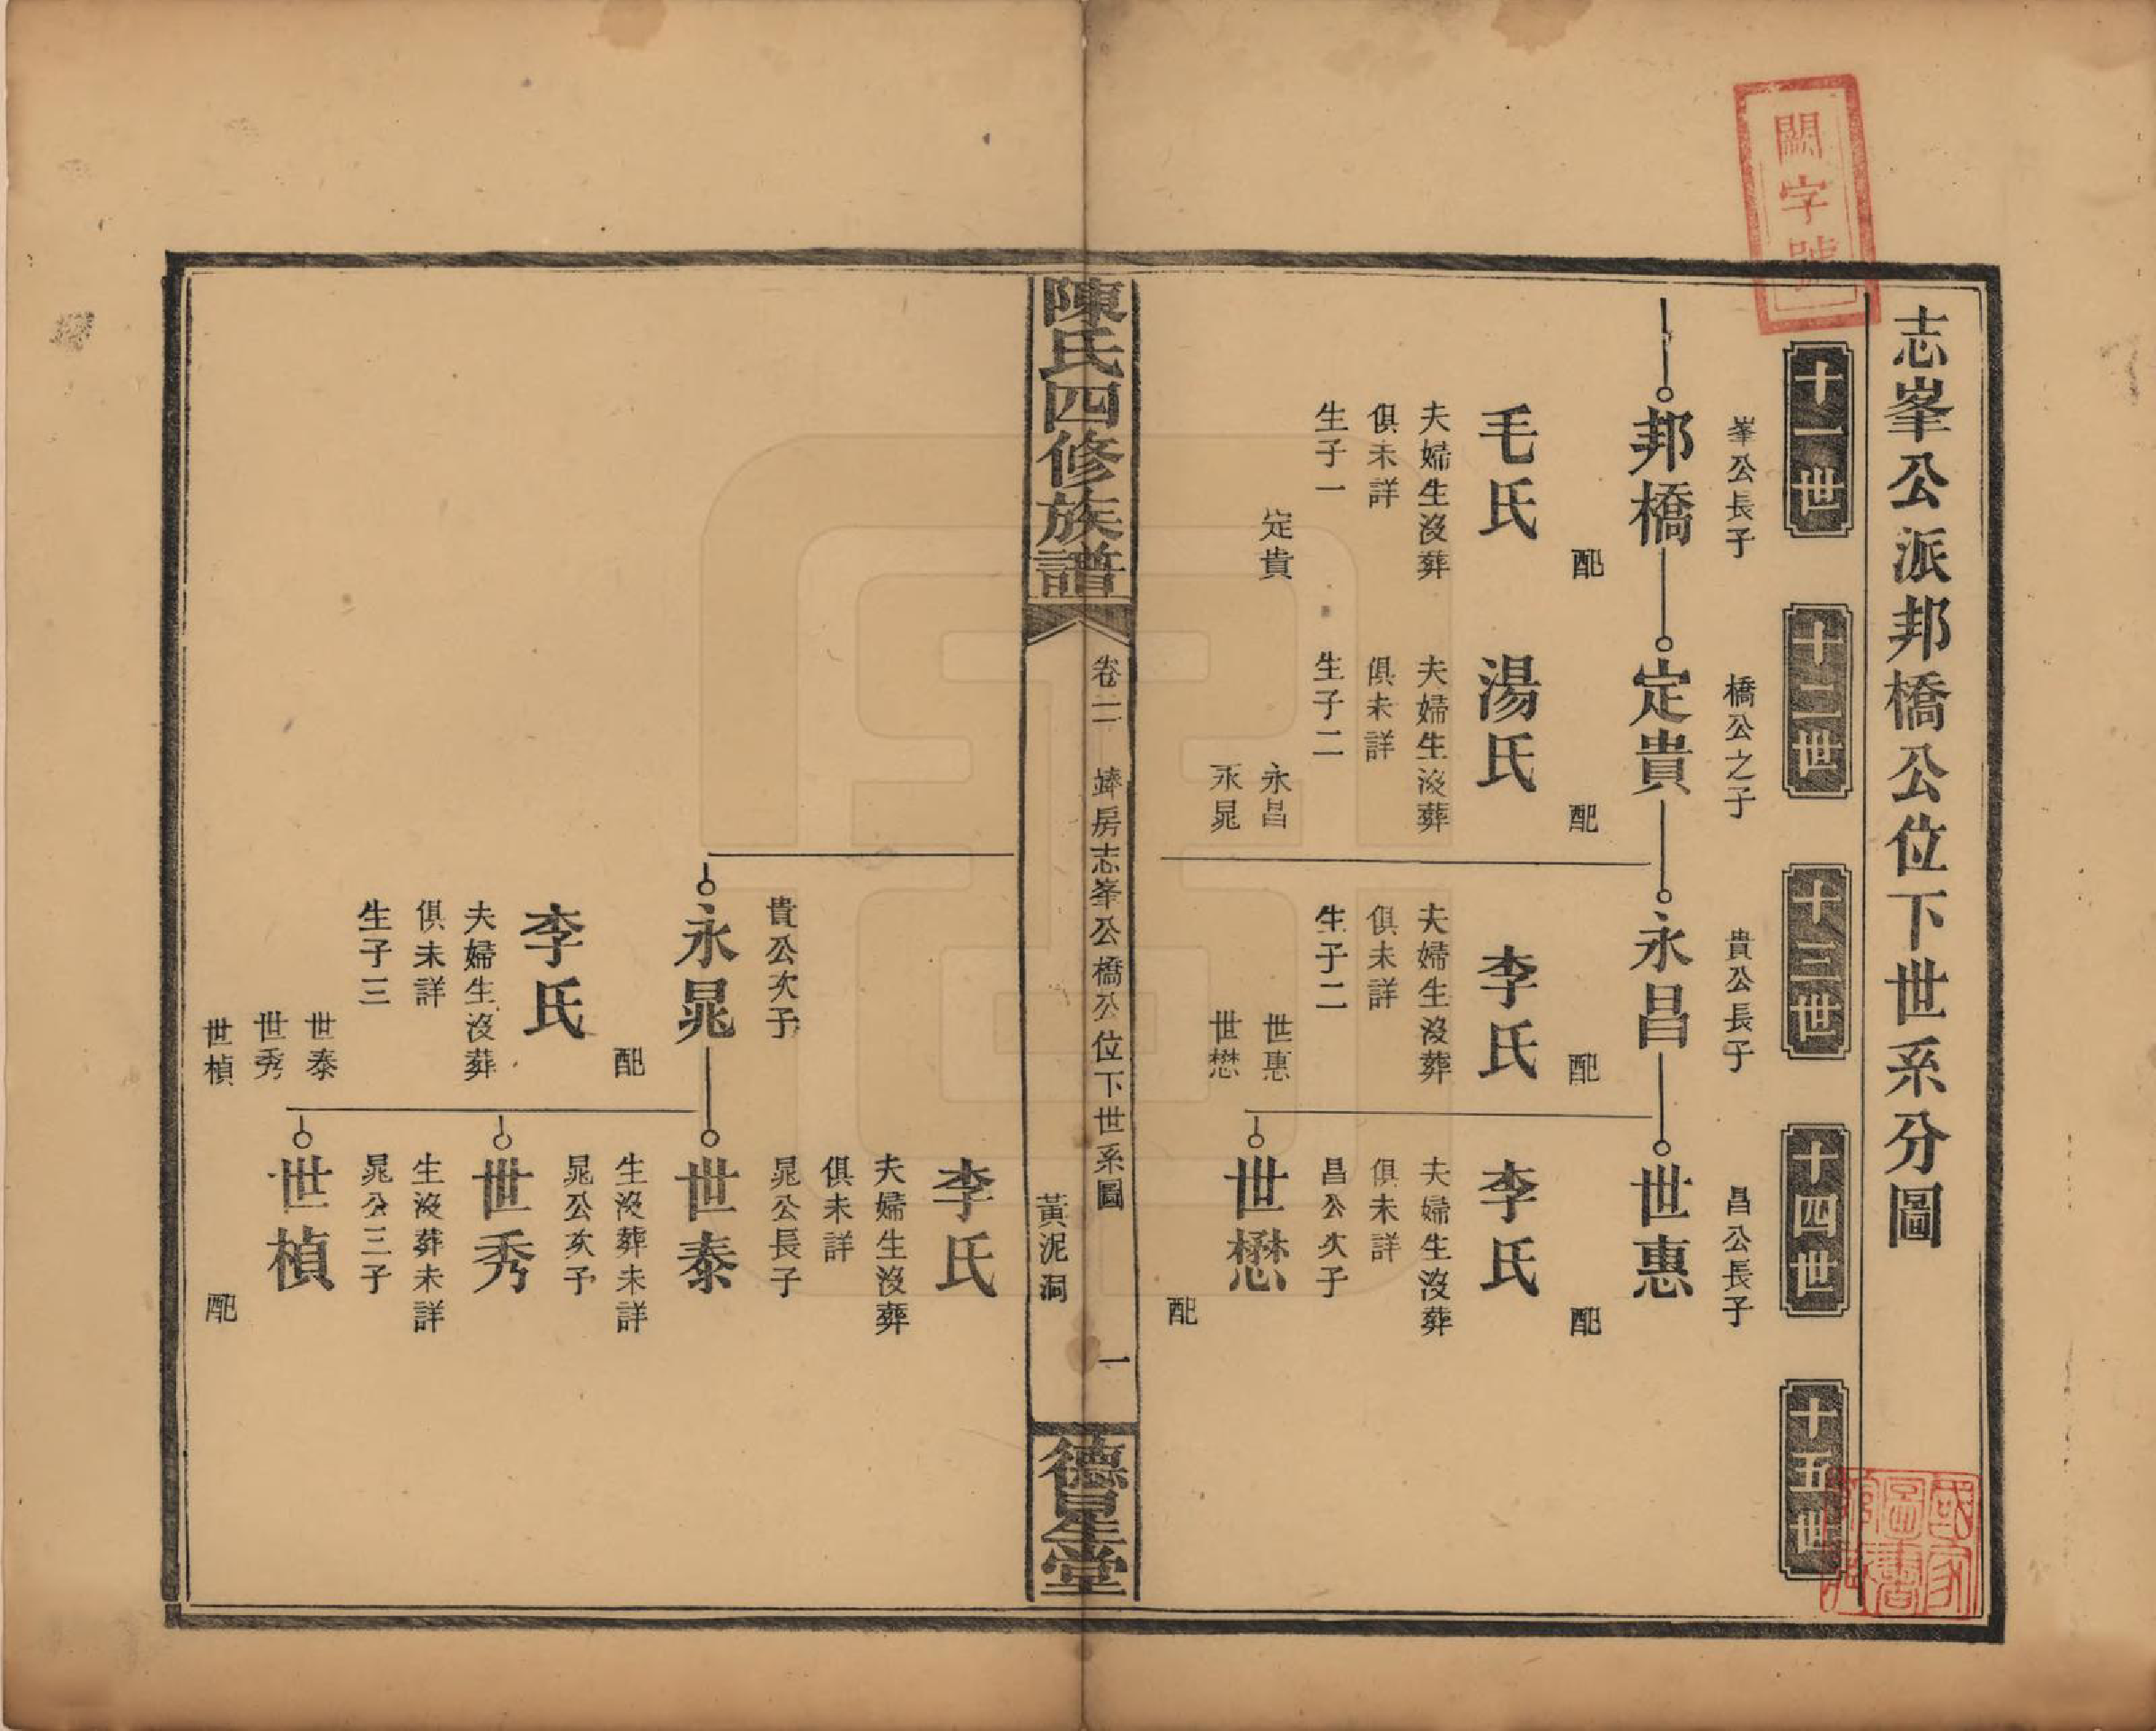 闕字號
志峯公派邦橋公位下世系分圖
十一世
十二世
十三世
十四世
十五世
峯公長子
邦橋
配
毛氏
夫婦生沒葬
俱未詳
生子一
定貴
橋公之子
定貴
配
湯氏
夫婦生沒葬
俱未詳
生子二
永昌
永晁
貴公長子
永昌
配
李氏
夫婦生沒葬
俱未詳
生子二
世惠
世懋
昌公長子
世惠
配
李氏
夫婦生沒葬
俱未詳
昌公次子
世懋
配
陳氏四修族譜
卷二
房志峯公橋公位下世系圖
黃泥洞
一
德星堂
李氏
夫婦生沒葬
俱未詳
貴公次子
永晁
配
李氏
夫婦生沒葬
俱未詳
生子三
世泰
世秀
世楨
晁公長子
世泰
生沒葬未詳
晁公次子
世秀
生沒葬未詳
晁公三子
世楨
配
國家圖書館藏